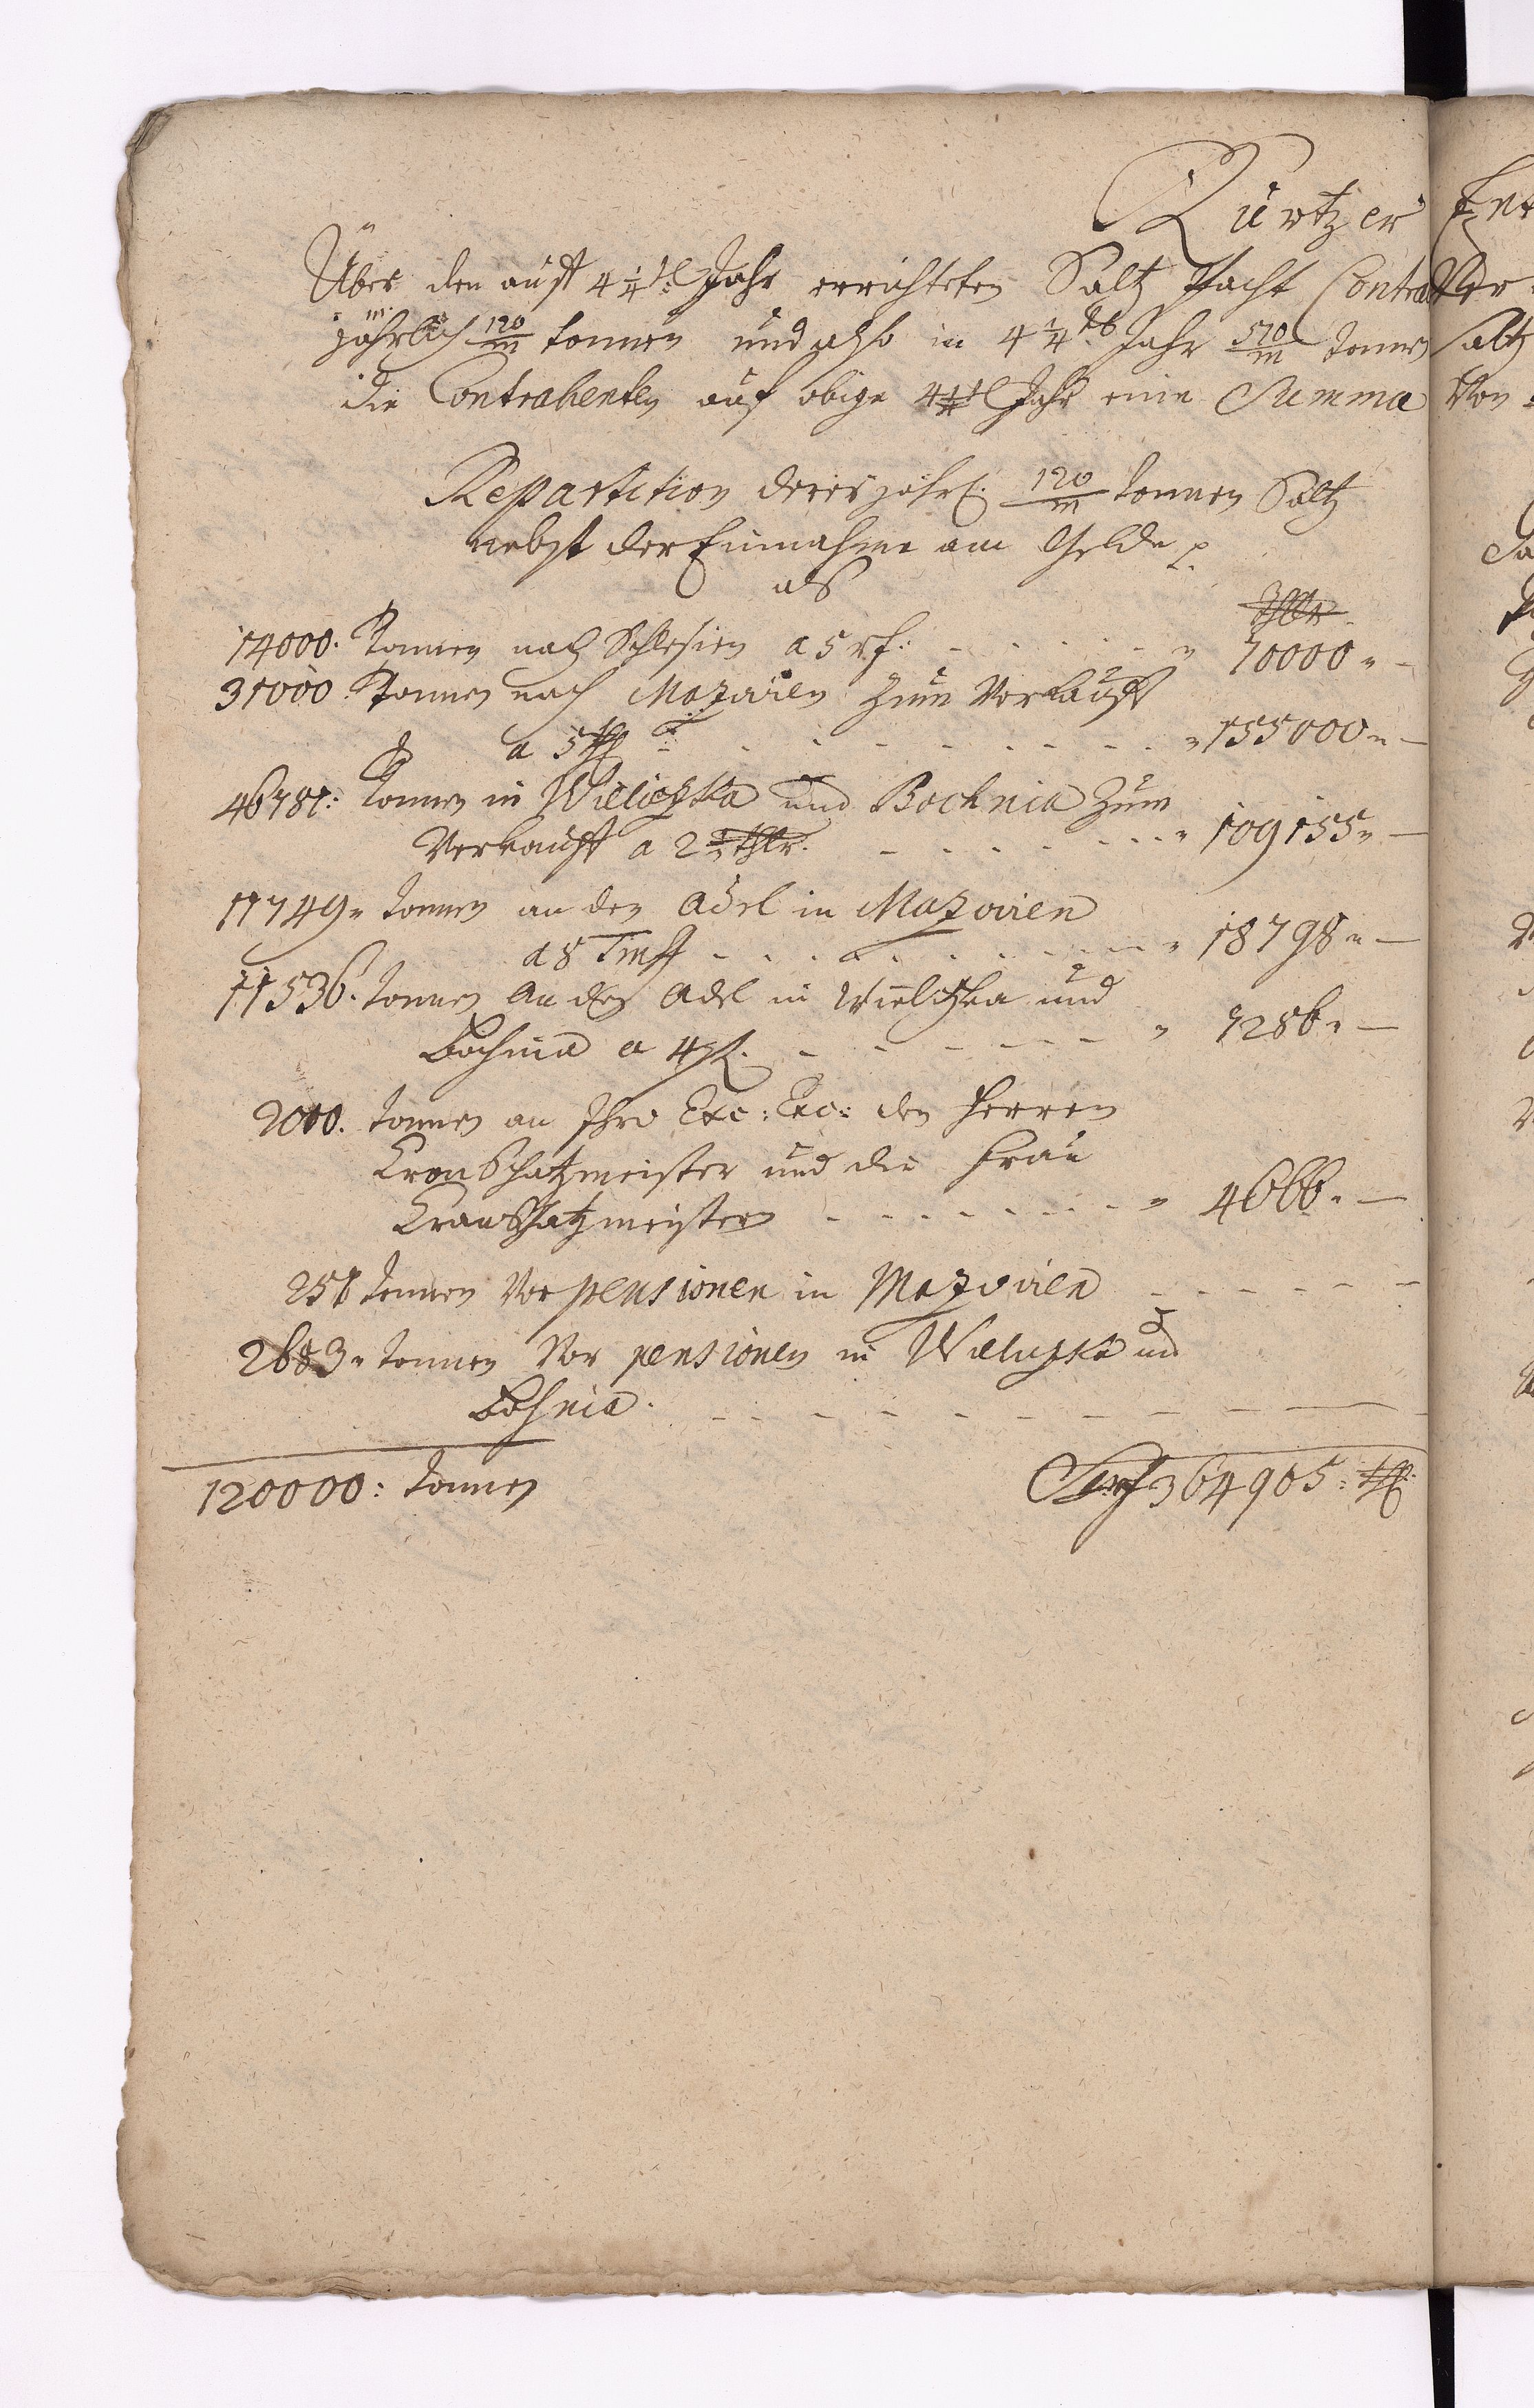 Kurtzer Ent
Über den auff 4 1/4tel Jahr errichteten Saltz Pacht Contract
jährlich 120/m tonnen und also in 4 3/4 Jahr 570/m tonnen Saltz
die Contrahenten auf obige 4 3/4tel Jahr eine Summa Von
Repartition derer jährl. 120/m tonnen Saltz
nebst der Einnahme am Gelde p.
als
Thlr.
14000. Tonnen nach Schlesien a 5 rf. 70000
31000. Tonnen nach Mazovien zum Verkauff
a 5 thl 155000
46781: Tonnen in Wieliczka und Bochnia zum
Verkauff a 2 1/3 thlr. 109155
11749 tonnen an den Adel in Mazovien
a 8 Timff 18798
11536. tonnen an den Adel in Wieliczka und
Bochnia a 4 gl. 7286
2000. tonnen an Ihro Exc: Exc: den Herren
Cron Schatzmeister und die Frau
Cron Schatzmeistern 4666
251 tonnen Vor pensionen in Mazovien
2683 tonnen Vor pensionen in Wieliczka und
Bochnia.
120000: tonnen
364905: thl.